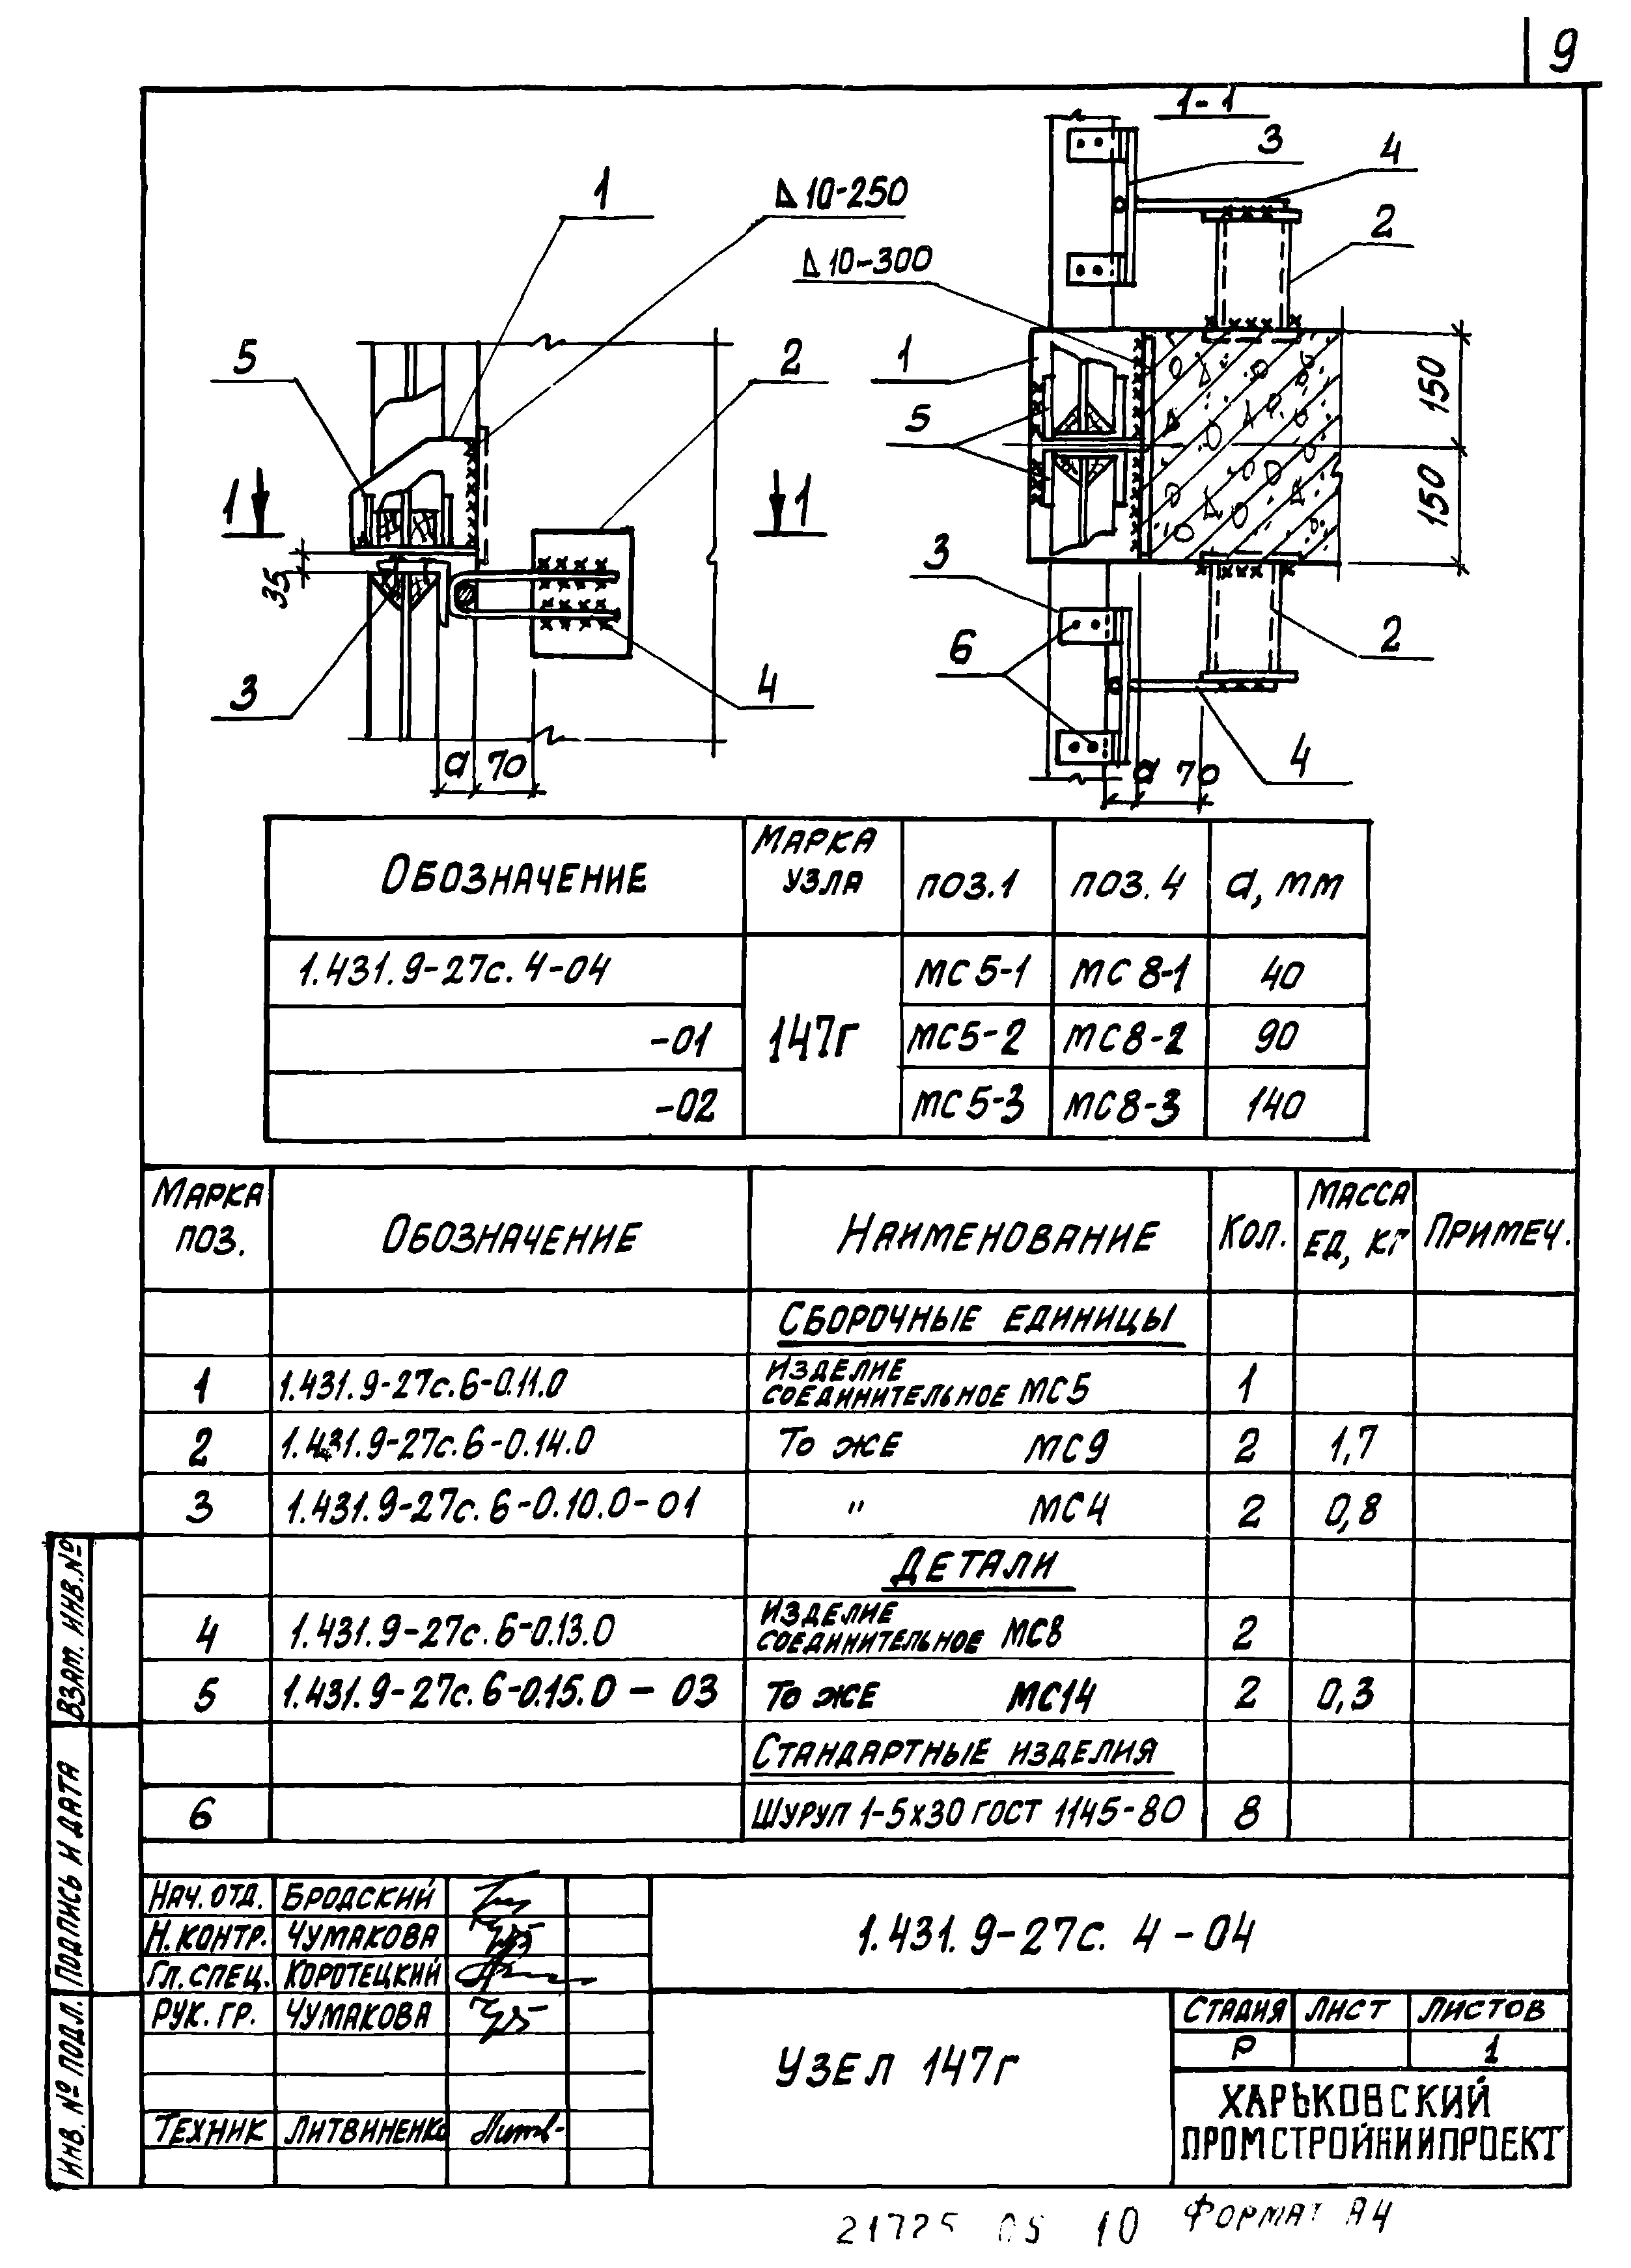 9
1-1
1
Δ10-250
Δ10-300
5
2
1
1
35
3
4
а 70
3
4
2
1
5
150
150
3
6
2
4
а 70
Обозначение Марка узла поз.1 поз.4 а, мм
1.431.9-27с.4-04 147г МС5-1 МС8-1 40
-01 МС5-2 МС8-2 90
-02 МС5-3 МС8-3 140
Марка поз. Обозначение Наименование Кол. Масса ед, кг Примеч.
Сборочные единицы
1 1.431.9-27с.6-0.11.0 Изделие соединительное МС5 1
2 1.431.9-27с.6-0.14.0 То же МС9 2 1,7
3 1.431.9-27с.6-0.10.0-01 " МС4 2 0,8
Детали
4 1.431.9-27с.6-0.13.0 Изделие соединительное МС8 2
5 1.431.9-27с.6-0.15.0-03 То же МС14 2 0,3
Стандартные изделия
6 Шуруп 1-5х30 ГОСТ 1145-80 8
Взам. инв.№
Подпись и дата
Инв. № подл.
Нач. отд. Бродский
Н. контр. Чумакова
Гл. спец. Коротецкий
Рук. гр. Чумакова
Техник Литвиненко
1.431.9-27с. 4-04
Узел 147г
Стадия Лист Листов
Р 1
ХАРЬКОВСКИЙ
ПРОМСТРОЙНИИПРОЕКТ
21725 05 10 Формат А4